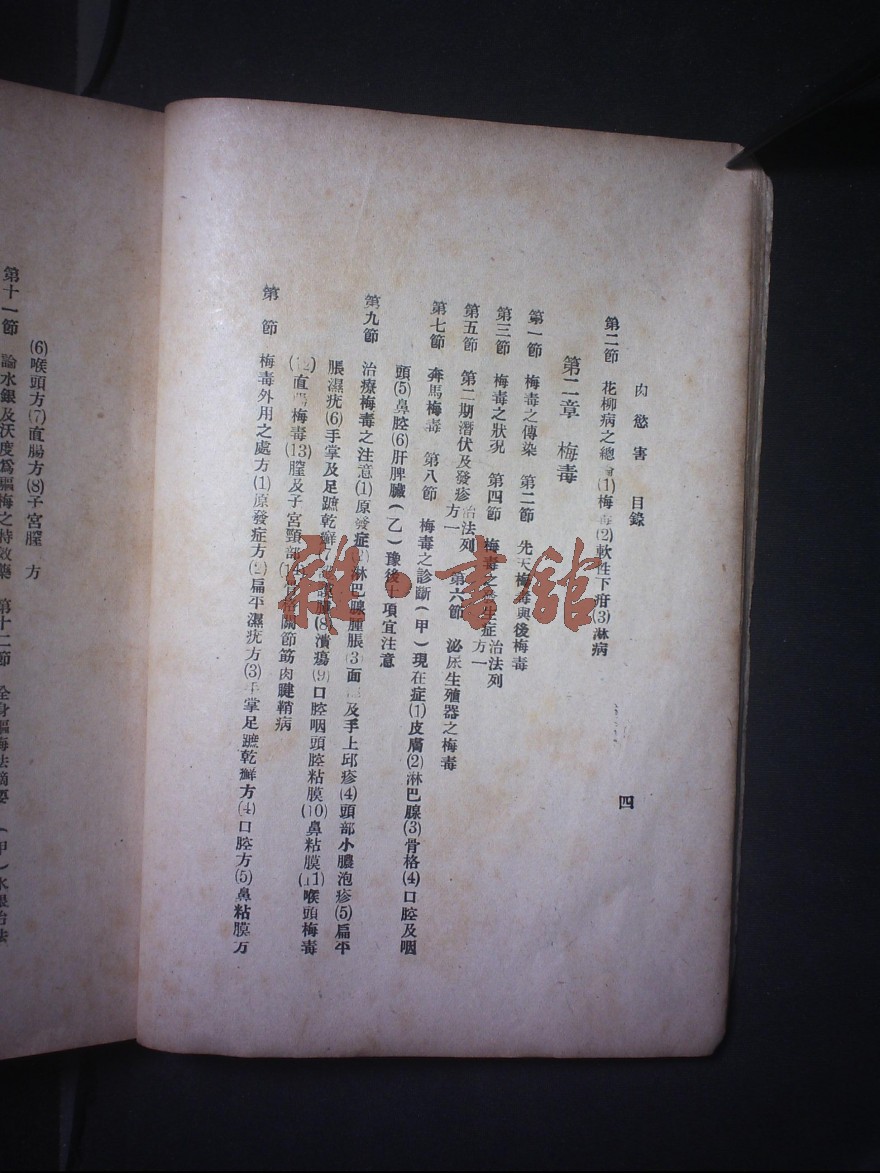 肉慾害　目錄　四
第二節　花柳病之總　(1)梅毒(2)軟性下疳(3)淋病
第二章　梅毒
第一節　梅毒之傳染　第二節　先天梅毒與後梅毒
第三節　梅毒之狀況　第四節　梅毒之　生症治法列方一
第五節　第二期潛伏及發疹治法列方一　第六節　泌尿生殖器之梅毒
第七節　奔馬梅毒　第八節　梅毒之診斷(甲)現在症(1)皮膚(2)淋巴腺(3)骨格(4)口腔及咽
頭(5)鼻腔(6)肝脾臟(乙)豫後　項宜注意
第九節　治療梅毒之注意(1)原發症(2)淋巴腺腫脹(3)面　及手上邱疹(4)頭部小膿泡疹(5)扁平
脹濕疣(6)手掌及足蹠乾癬　(8)潰瘍(9)口腔咽頭腔粘膜(10)鼻粘膜(11)喉頭梅毒
(12)直腸梅毒(13)膣及子宮頸部　關節筋肉腱鞘病
第　節　梅毒外用之處方(1)原發症方(2)扁平濕疣方(3)手掌足蹠乾癬方(4)口腔方(5)鼻粘膜方
(6)喉頭方(7)直腸方(8)子宮膣　方
第十一節　論水銀及沃度爲驅梅之特效藥　第十二節　全身驅梅法摘要　(甲)水銀治法
雜·書館